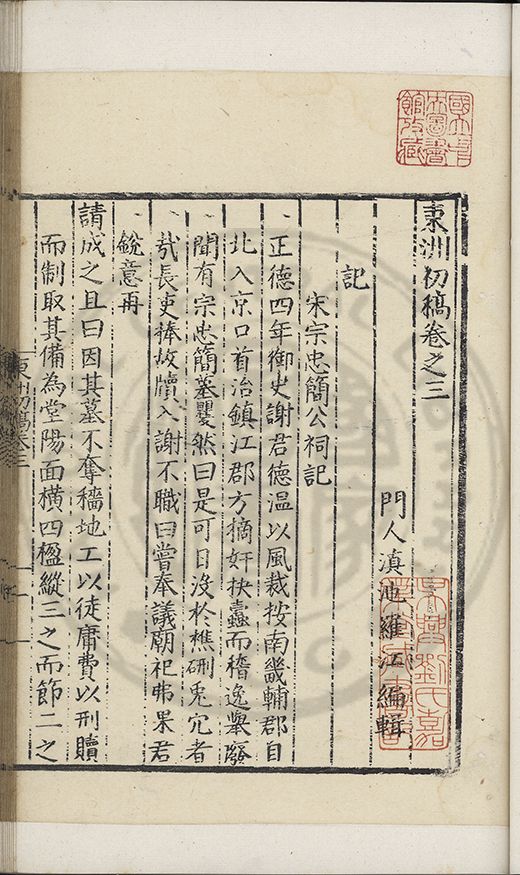 東洲初稿卷之三
門人滇池羅江編輯
記
宋宗忠簡公祠記
正德四年御史謝君德溫以風裁按南畿輔郡自
北入京口首治鎮江郡方摘奸抉蠹而稽逸舉廢
聞有宗忠簡墓矍然曰是可日沒於樵硎兎宂者
㢤長吏捧故牘入謝不職曰嘗奉議廟祀弗果君
銳意再
請成之且曰因其墓不奪穡地工以徒庸費以刑贖
而制取其備為堂陽面橫四楹縱三之而節二之
國立中央圖書館收藏
吳興劉氏嘉業堂藏書印